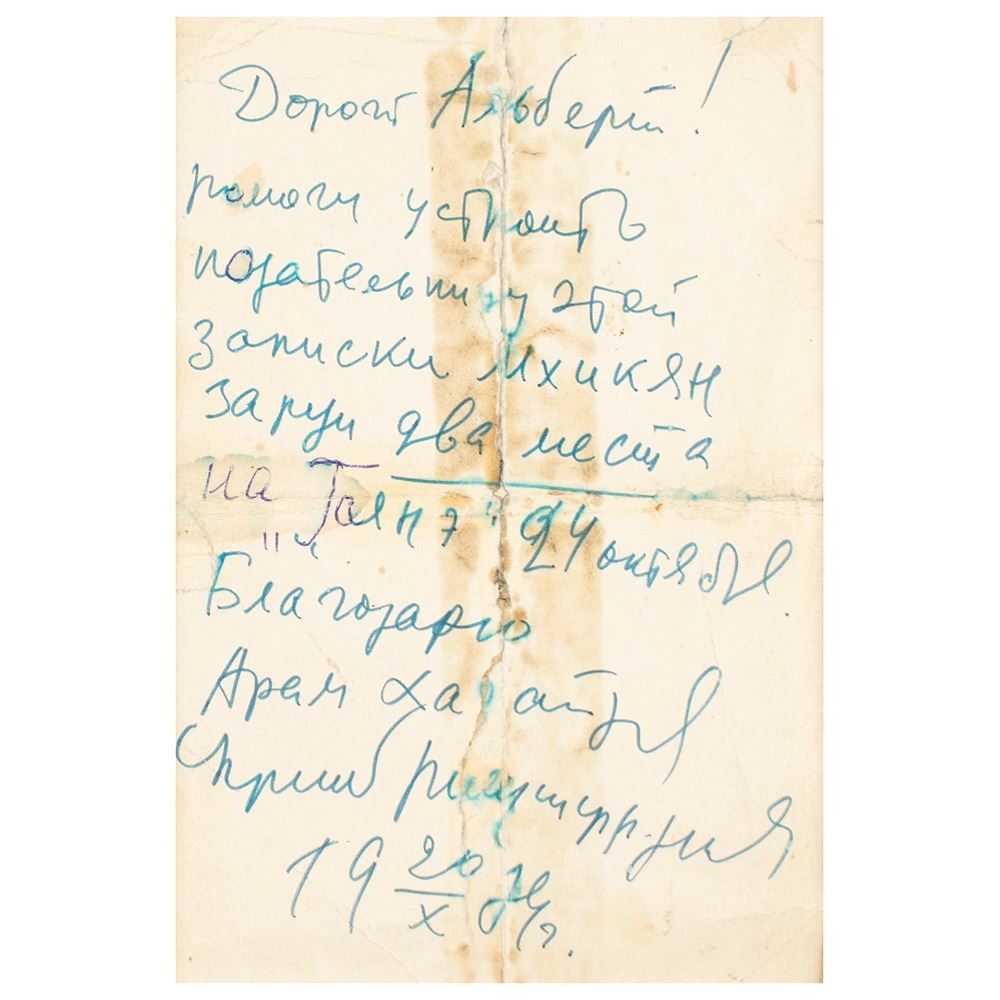 Дорогой Альберт!
помоги устроить
подательницу этой
записки Мхикян
Заруи два места
на "Гаянэ" 24 октября.
Благодарю
Арам Хачатурян
19 20/X 74г.